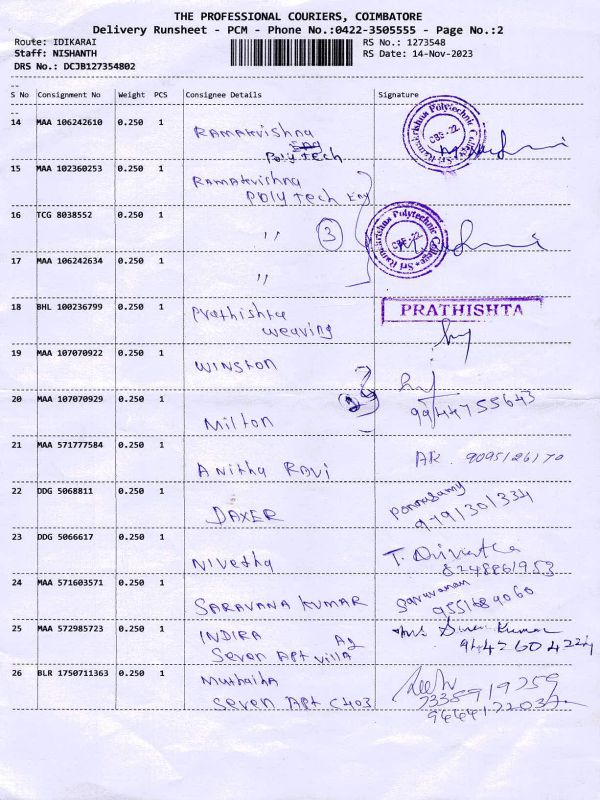 THE PROFESSIONAL COURIERS, COIMBATORE
Delivery Runsheet - PCM - Phone No.:0422-3505555 - Page No.:2
Route: IDIKARAI
RS No.: 1273548
Staff: NISHANTH
RS Date: 14-Nov-2023
DRS No.: DCJB127354802
S No Consignment No Weight PCS Consignee Details Signature
14 MAA 106242610 0.250 1 Ramakrishna
Poly tech
Sri Ramakrishna Polytechnic College
CBE-22
15 MAA 102360253 0.250 1 Ramakrishna
Poly tech Eng
16 TCG 8038552 0.250 1 " 3
Sri Ramakrishna Polytechnic College
CBE-22
17 MAA 106242634 0.250 1 "
18 BHL 100236799 0.250 1 Prathishta
weaving
PRATHISHTA
19 MAA 107070922 0.250 1 Winston
20 MAA 107070929 0.250 1 Milton
9944755643
21 MAA 571777584 0.250 1 Anitha Ravi AR. 9095126170
22 DDG 5068811 0.250 1 DAXER Ponnusamy
9791301334
23 DDG 5066617 0.250 1 Nivetha
8248861953
24 MAA 571603571 0.250 1 SARAVANA KUMAR Saravanan
9551689060
25 MAA 572985723 0.250 1 INDIRA A2
Seven Apt villa
26 BLR 1750711363 0.250 1
Seven Apt C403